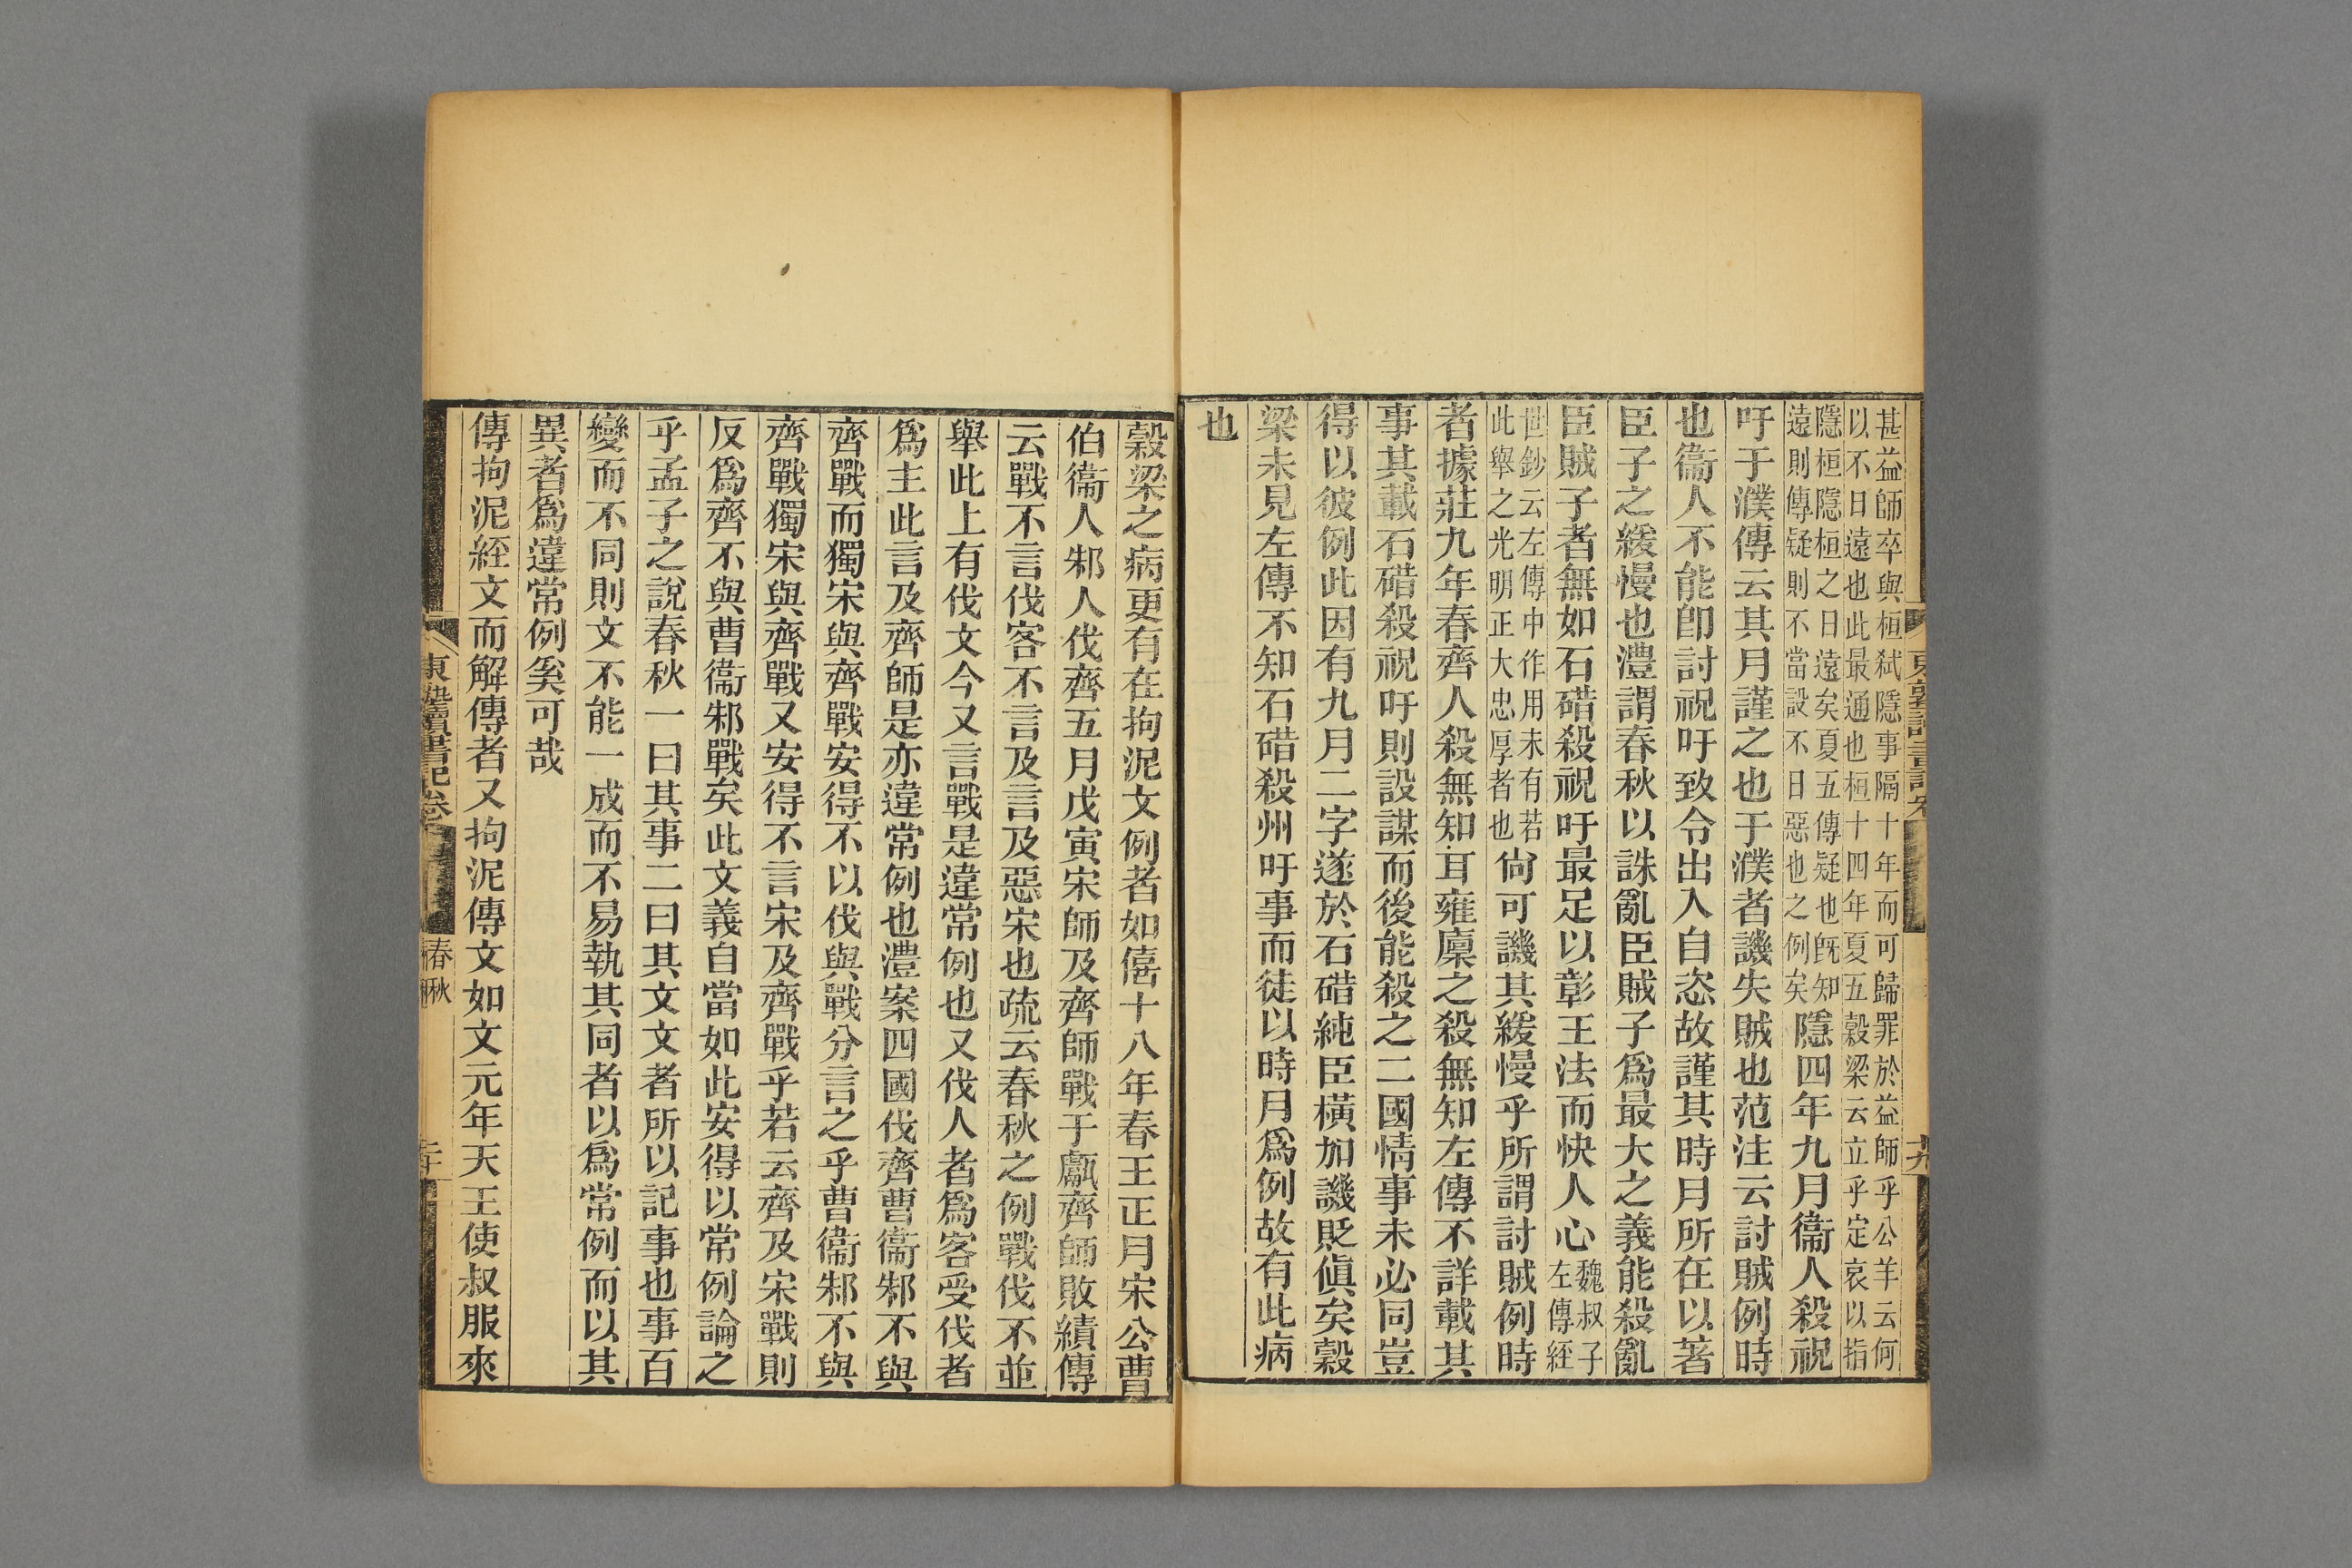 甚益師卒與桓弑隱事隔十年而可歸罪於益師乎公羊云何
以不日遠也此最通也桓十四年夏五穀梁云立乎定哀以指
隱桓隱桓之日遠矣夏五傳疑也旣知
遠則傳疑則不當設不日惡也之例矣隱四年九月衞人殺祝
吁于濮傳云其月謹之也于濮者譏失賊也范注云討賊例時
也衞人不能卽討祝吁致令出入自恣故謹其時月所在以著
臣子之緩慢也澧謂春秋以誅亂臣賊子爲最大之義能殺亂
臣賊子者無如石碏殺祝吁最足以彰王法而快人心魏叔子左傳經
世鈔云左傳中作用未有若此舉之光明正大忠厚者也尙可譏其緩慢乎所謂討賊例時
者據莊九年春齊人殺無知耳雍廩之殺無知左傳不詳載其
事其載石碏殺祝吁則設謀而後能殺之二國情事未必同豈
得以彼例此因有九月二字遂於石碏純臣橫加譏貶傎矣穀
梁未見左傳不知石碏殺州吁事而徒以時月爲例故有此病
也
十九
穀梁之病更有在拘泥文例者如僖十八年春王正月宋公曹
伯衞人邾人伐齊五月戊寅宋師及齊師戰于甗齊師敗績傳
云戰不言伐客不言及言及惡宋也疏云春秋之例戰伐不並
舉此上有伐文今又言戰是違常例也又伐人者爲客受伐者
爲主此言及齊師是亦違常例也澧案四國伐齊曹衞邾不與
齊戰而獨宋與齊戰安得不以伐與戰分言之乎曹衞邾不與
齊戰獨宋與齊戰又安得不言宋及齊戰乎若云齊及宋戰則
反爲齊不與曹衞邾戰矣此文義自當如此安得以常例論之
乎孟子之說春秋一曰其事二曰其文文者所以記事也事百
變而不同則文不能一成而不易執其同者以爲常例而以其
異者爲違常例奚可哉
傳拘泥經文而解傳者又拘泥傳文如文元年天王使叔服來
東塾讀書記卷
春秋
二十